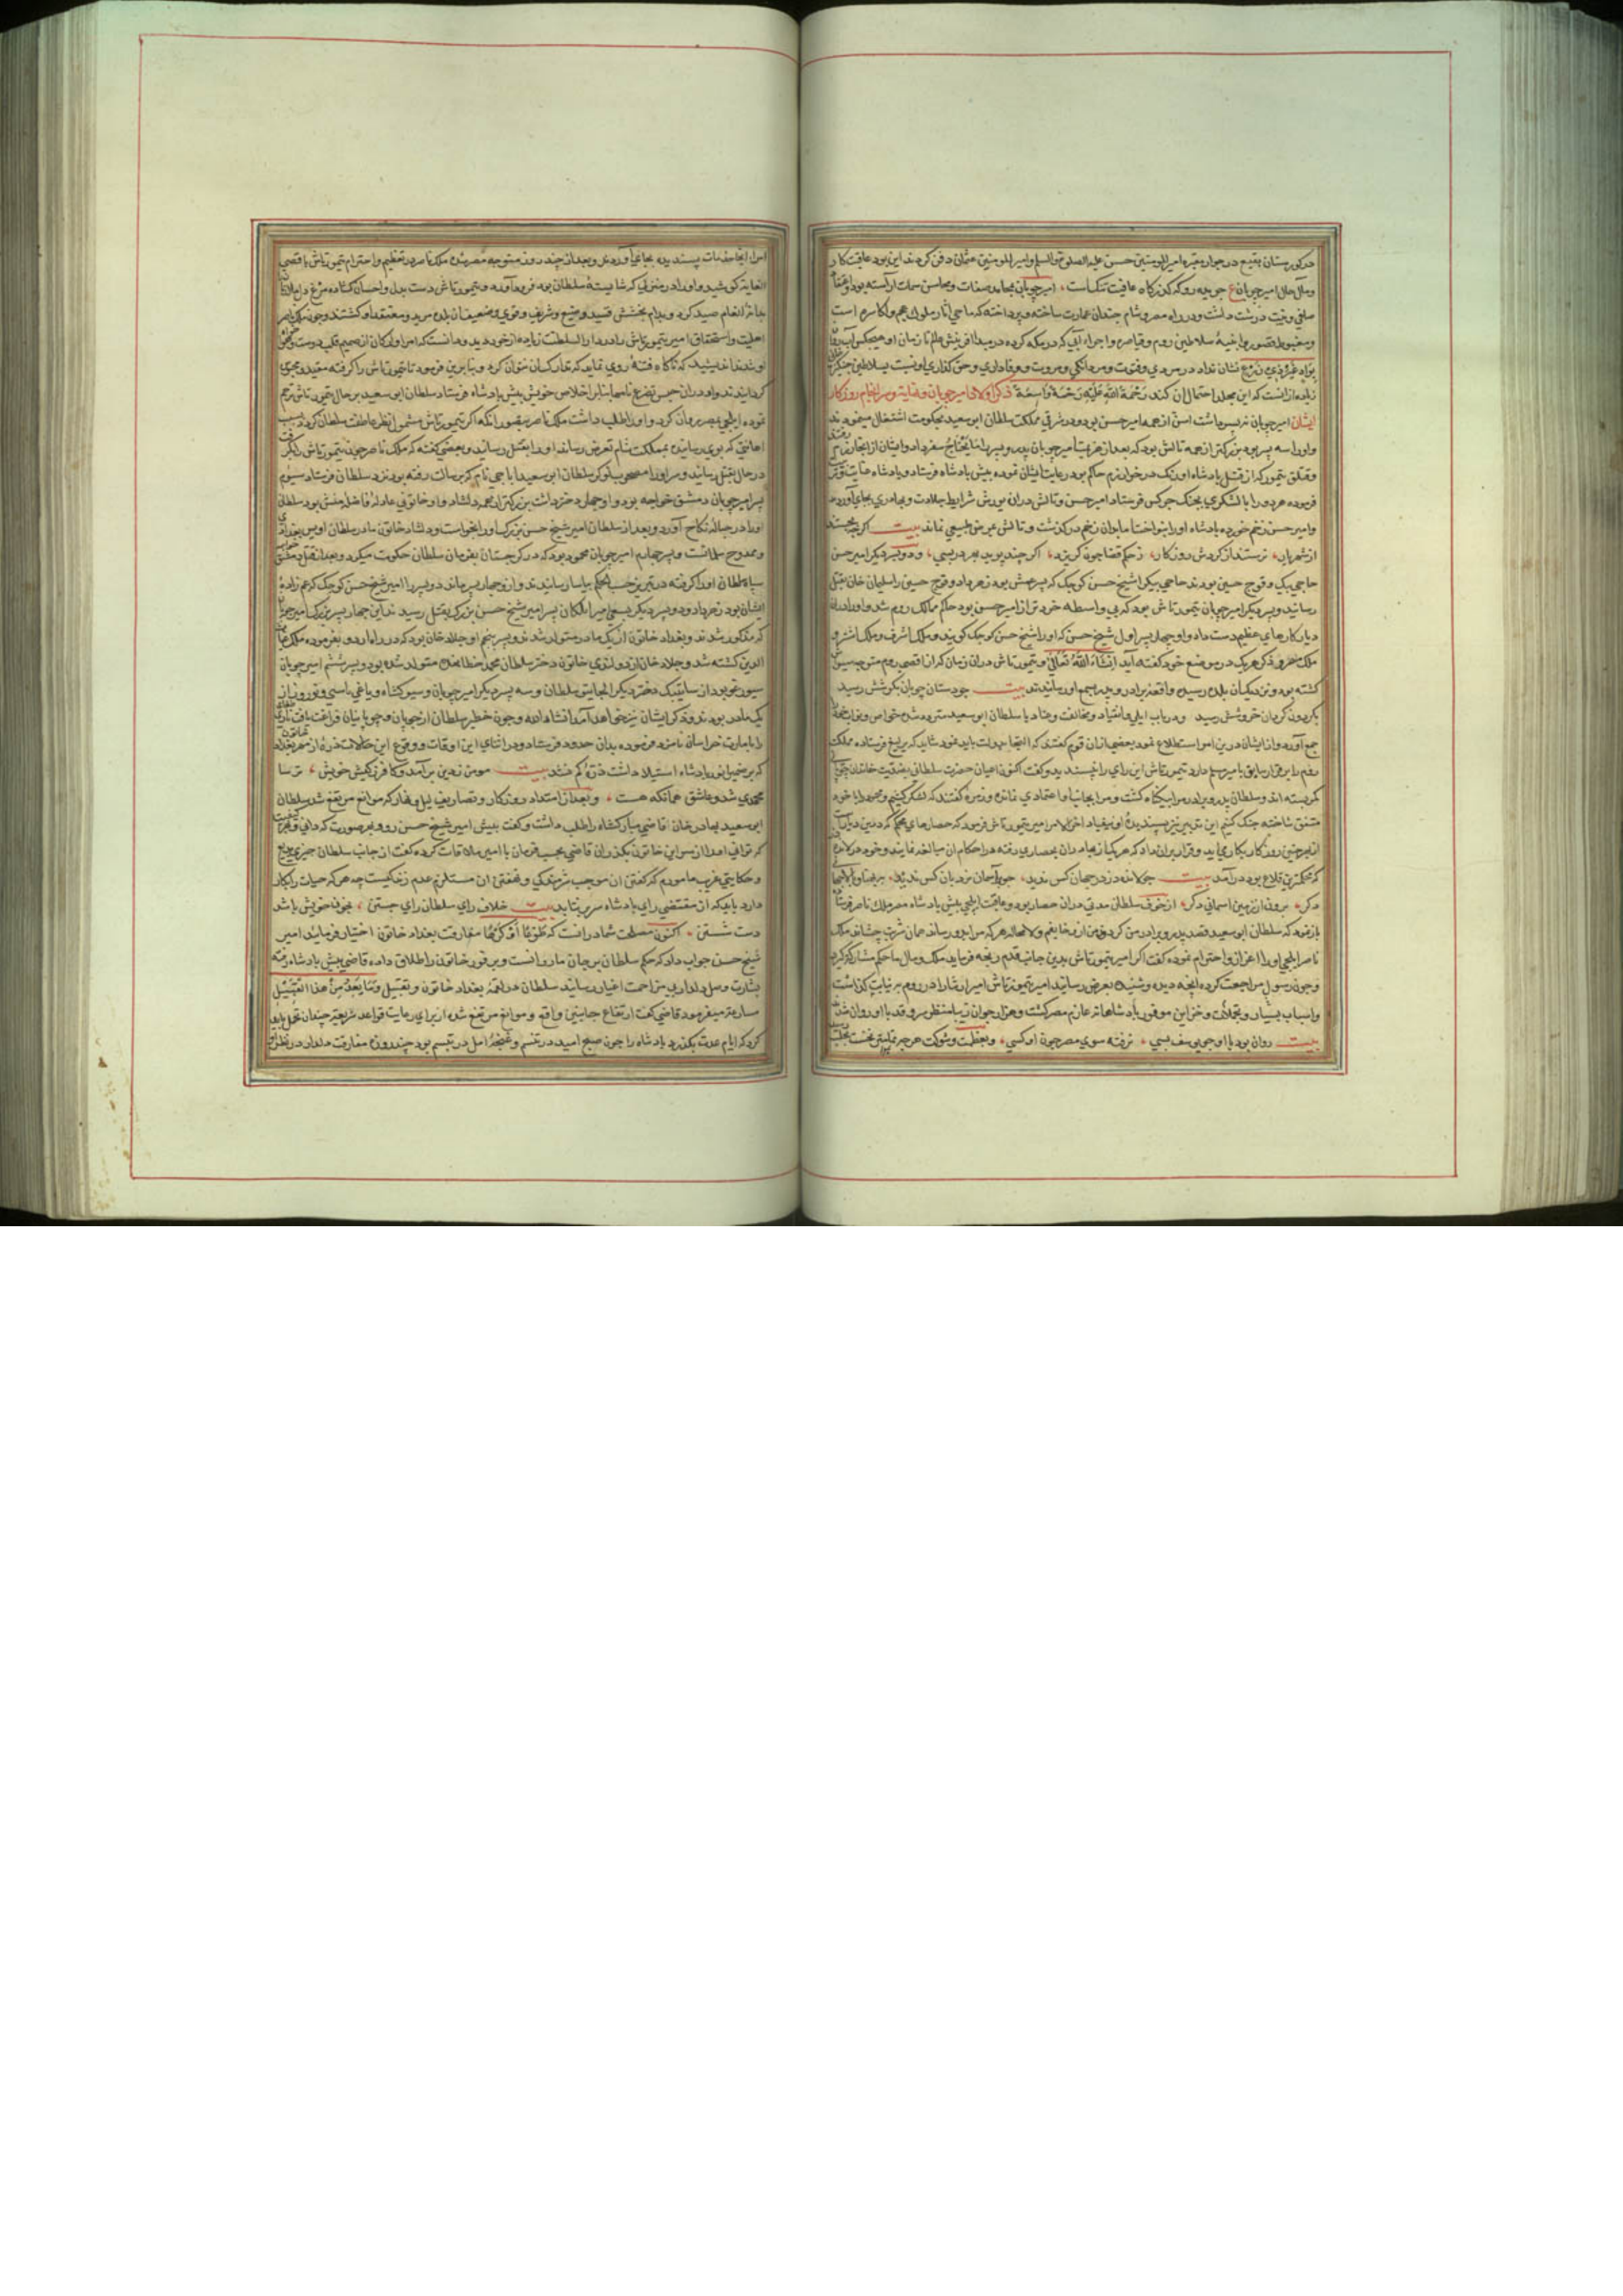 در کورستان بقیع در جوار مقبره امیر المومنین حسن علیه الصلوة والسلام وامیر المومنین عثمان دفن کردند این بود عاقبت کار
ومآل حال امیر چوبان ع جریده رو که کذرکاه عافیت تنکست امیر چوبان بمحامد صفات ومحاسن سمات آراسته بود
صافی ونیت درست داشت ودر راه مصر وشام چندان عمارت ساخته وپرداخته که ماحی آثار ملوک عجم واکاسره است
سلاطین روم وقیاصر واجراء آبی که در مکه کرده در مبدا آفرینش عالم تا زمان او هیچکس
نشان نداد در مردی وفتوت ومردانکی ومروت ووفاداری وحق کذاری او نسبت بسلاطین
زیاده از انست که این مجلد احتمال آن کند رحمة الله علیه رحمة واسعة ذکر اولاد امیر چوبان وسرانجام روزکار
ایشان امیر چوبان نه پسر داشت امیر حسن بود ودر شرقی مملکت سلطان ابو سعید بحکومت اشتغال مینمودند
واو را سه پسر بود بزرکتر از همه تالش بود که بعد از هزیمت امیر چوبان پدر وپسر
وقتلق تیمور که از قبل پادشاه اوزبک در خوارزم حاکم بود رعایت ایشان نموده پیش پادشاه فرستاد وپادشاه
فرموده هر دو را با لشکری بجنک چرکس فرستاد امیر حسن وتالش در آن یورش شرایط جلادت وبهادری بجای آوردند
وامیر حسن زخم خورده پادشاه او را بنواخت اما بدان زخم در کذشت وتالش بمرض طبیعی نماند بیت
از شهریار نرستند از کردش روزکار ز حکم قضا چون کریزد کسی اکر چند پوید بهر در بسی ودو پسر دیکر امیر حسن
حاجی بیک وقوج حسین بودند حاجی بیک را شیخ حسن کوچک که پسر عمش بود زهر داد وقوج حسین را سلیمان خان بقتل
رسانید وپسر دیکر امیر چوبان تیمورتاش بود که بی واسطه خردتر از امیر حسن بود حاکم ممالک روم شد واو را در آن
دیار کارهای عظیم دست داد واو چهار پسر اول شیخ حسن که او را شیخ حسن کوچک کویند وملک اشرف وملک اشتر و
ملک مصر وذکر هر یک در موضع خود کفته آید انشاء الله تعالی وتیمورتاش در آن زمان که از اقصی روم متوجه سیس
کشته بود ونزدیک آن بلده رسید واقعه برادر وپدر بسمع او رسانیدند بیت چو دستان چوبان بکوشش رسید
بکردون کردان خروشش رسید ودر باب ایلی وانقیاد ومخالفت وعناد با سلطان ابو سعید متردد شد خواص ونواب خود را
جمع آورد واز ایشان درین امر استطلاع نمود بعضی از آن قوم کفتند که التجا بدولت باید نمود شاید که یرلیغ فرستاده مملکت
روم را بر قرار سابق بامیر مسلم دارد تیمورتاش این رای را نپسندید وکفت اکنون اعیان حضرت سلطانی بعقیدت خاندان
کمر بسته اند وسلطان پدر وبرادر مرا بیکناه کشت ومرا بجانب او اعتمادی نمانده وزمره کفتند که لشکر کشیم وخود را با خود
متفق ساخته جنک کنیم این تدبیر نیز پسندیده او نیفتاد آخر الامر امیر تیمورتاش فرمود که حصارهای محکم که در این دیار
از بهر چنین روزکار بکار می آید وقرار بر آن داد که هر یک از بهادران بحصاری رفته در احکام آن مبالغه نمایند وخود در لارنده
که محکمترین قلاع بود در آمد بیت چو لارنده دز در جهان کس ندید چو بر آسمان نردبان کس ندید
دکر برون از زمین آسمانی دکر از خوف سلطان مدتی در آن حصار بود وعاقبت ایلچی پیش پادشاه مصر ملک ناصر فرستاد
باز نمود که سلطان ابو سعید قصد پدر وبرادر من کرد ومن از او خایفم
ناصر ایلچی او را اعزاز واحترام نموده کفت اکر امیر تیمورتاش بدین جانب قدم رنجه فرماید ملک ومال ما حکم مشارکت کیرد
وچون رسول مراجعت کرده آنچه دیده وشنیده بعرض رسانید امیر تیمورتاش امیر ارتنا را در روم به نیابت کذاشت
واسباب بسیار وتجملات وخزاین موفور پادشاهانه عازم مصر کشت وهزار جوان زیبا منظر سرو قد با او روان شد
بیت روان بود با او چو یوسف بسی نرفته سوی مصر چون او کسی وبعظمت وشوکت هر چه تمامتر
امراء آنجا خدمات پسندیده بجای آوردند وبعد از چند روز متوجه مصر شد ملک ناصر در تعظیم واحترام تیمورتاش باقصی
الغایه کوشید واو را در منزلی که شایسته سلطان بود فرود آورد وتیمورتاش دست بذل واحسان کشاده مرغ دلها را
بدانه انعام صید کرد وبدام بخشش قید وضیع وشریف وقوی وضعیف آن بلده مرید ومعتقد او کشتند وچون ملک ناصر
اهلیت واستحقاق امیر تیمورتاش را در دارائی سلطنت زیاده از خود دید ودانست که امرا وارکان از صمیم قلب دوست
او شدند اندیشید که ناکاه فتنه روی نماید که تدارک آن نتوان کرد وبنابرین فرمود تا تیمورتاش را کرفته مقید ومحبوس
کردانیدند واو در آن حبس تضرع نامها بنابر اخلاص خویش پیش پادشاه فرستاد سلطان ابو سعید بر حال تیمورتاش ترحم
نموده ایلچی بمصر روان کرد واو را طلب داشت ملک ناصر بتصور آنکه اکر تیمورتاش مشمول نظر عاطفت سلطان کردد بسبب
اهانتی که بوی رسانیده بمملکت شام تعرض رساند او را بقتل رسانید وبعضی کفته که ملک ناصر چون تیمورتاش را بکرفت
در حال بقتل رسانید وسر او را مصحوب نوکر سلطان ابو سعید اباجی نام که برسالت رفته بود نزد سلطان فرستاد سیوم
پسر امیر چوبان دمشق خواجه بود واو چهار دختر داشت بزرکتر از همه دلشاد واو خاتونی عادله فاضله منش بود سلطان
او را در حباله نکاح آورد وبعد از سلطان امیر شیخ حسن بزرک او را بخواست ودلشاد خاتون مادر سلطان اویس بغدادی
وممدوح سلمانست وپسر چهارم امیر چوبان محمود بود که در کرجستان بفرمان سلطان حکومت میکرد وبعد از قتل دمشق
سپاه سلطان او را کرفته در تبریز حسب الحکم بیاسا رسانیدند واز او چهار پسر ماند دو پسر را امیر شیخ حسن کوچک که عم زاده
ایشان بود زهر داد ودو پسر دیکر بسعی امیر ایلکان پسر امیر شیخ حسن بزرک بقتل رسیدند این چهار پسر بزرک امیر چوبان
که مذکور شدند وبغداد خاتون از یک مادر متولد شدند وپسر پنجم او جلاد خان بود که در راه اردو بفرموده ملک غیاث
الدین کشته شد وجلاد خان از دولندی خاتون دختر سلطان محمد خدابنده متولد شده بود وپسر ششم امیر چوبان
سیورغان بود از ساتی بیک دختر دیکر الجایتو سلطان وسه پسر دیکر امیر چوبان وسیوکشاه ویاغی باستی ونوروز از
یک مادر بودند وذکر ایشان نیز خواهد آمد انشاء الله وچون خاطر سلطان از چوبان وچوبانیان فراغت یافت
را بامارت خراسان نامزد فرموده بدان حدود فرستاد ودر اثنای این اوقات ووقوع این حالات ذره از مهر بغداد خاتون
که بر ضمیر انور پادشاه استیلا داشت ذره کم نشد بیت مومن ز دین بر آمد وکافر ز کیش خویش ترسا
محمدی شد وعاشق همانکه هست وبعد از امتداد روزکار وتصاریف لیل ونهار که موانع مرتفع شد سلطان
ابو سعید بهادر خان قاضی مبارکشاه را طلب داشت وکفت پیش امیر شیخ حسن رو وبهر صورت که دانی
که توانی او را از سر این خاتون بکذران قاضی بحسب فرمان با امیر ملاقات کرده کفت از جانب سلطان چیزی
وحکایتی غریب مامورم که کفتن آن موجب شرمندکی ونکفتن آن مستلزم عدم زندکیست چه هر که حیات را بکار
دارد باید که از مقتضی رای پادشاه سر بر نتابد بیت خلاف رای سلطان رای جستن بخون خویش باشد
دست شستن اکنون مصلحت شما در آنست که طوعا او کرها مفارقت بغداد خاتون اختیار فرمایند امیر
شیخ حسن جواب داد که حکم سلطان بر جان ما روانست وبر فور خاتون را طلاق داده قاضی پیش پادشاه رفته
بشارت وصل دلدار بی مزاحمت اغیار رسانید سلطان در لقمه بغداد خاتون وتقبیل وما یعد من هذا القبیل
مسارعة میفرمود قاضی کفت ارتفاع جانبین واقع وموانع مرتفع شد از برای رعایت قواعد شریعت چندان تحمل باید
کرد که ایام عدت بکذرد پادشاه را چون صبح امید در تنسم وغنچه امل در تبسم بود چند روزه مفارقت دلدار در نظر او